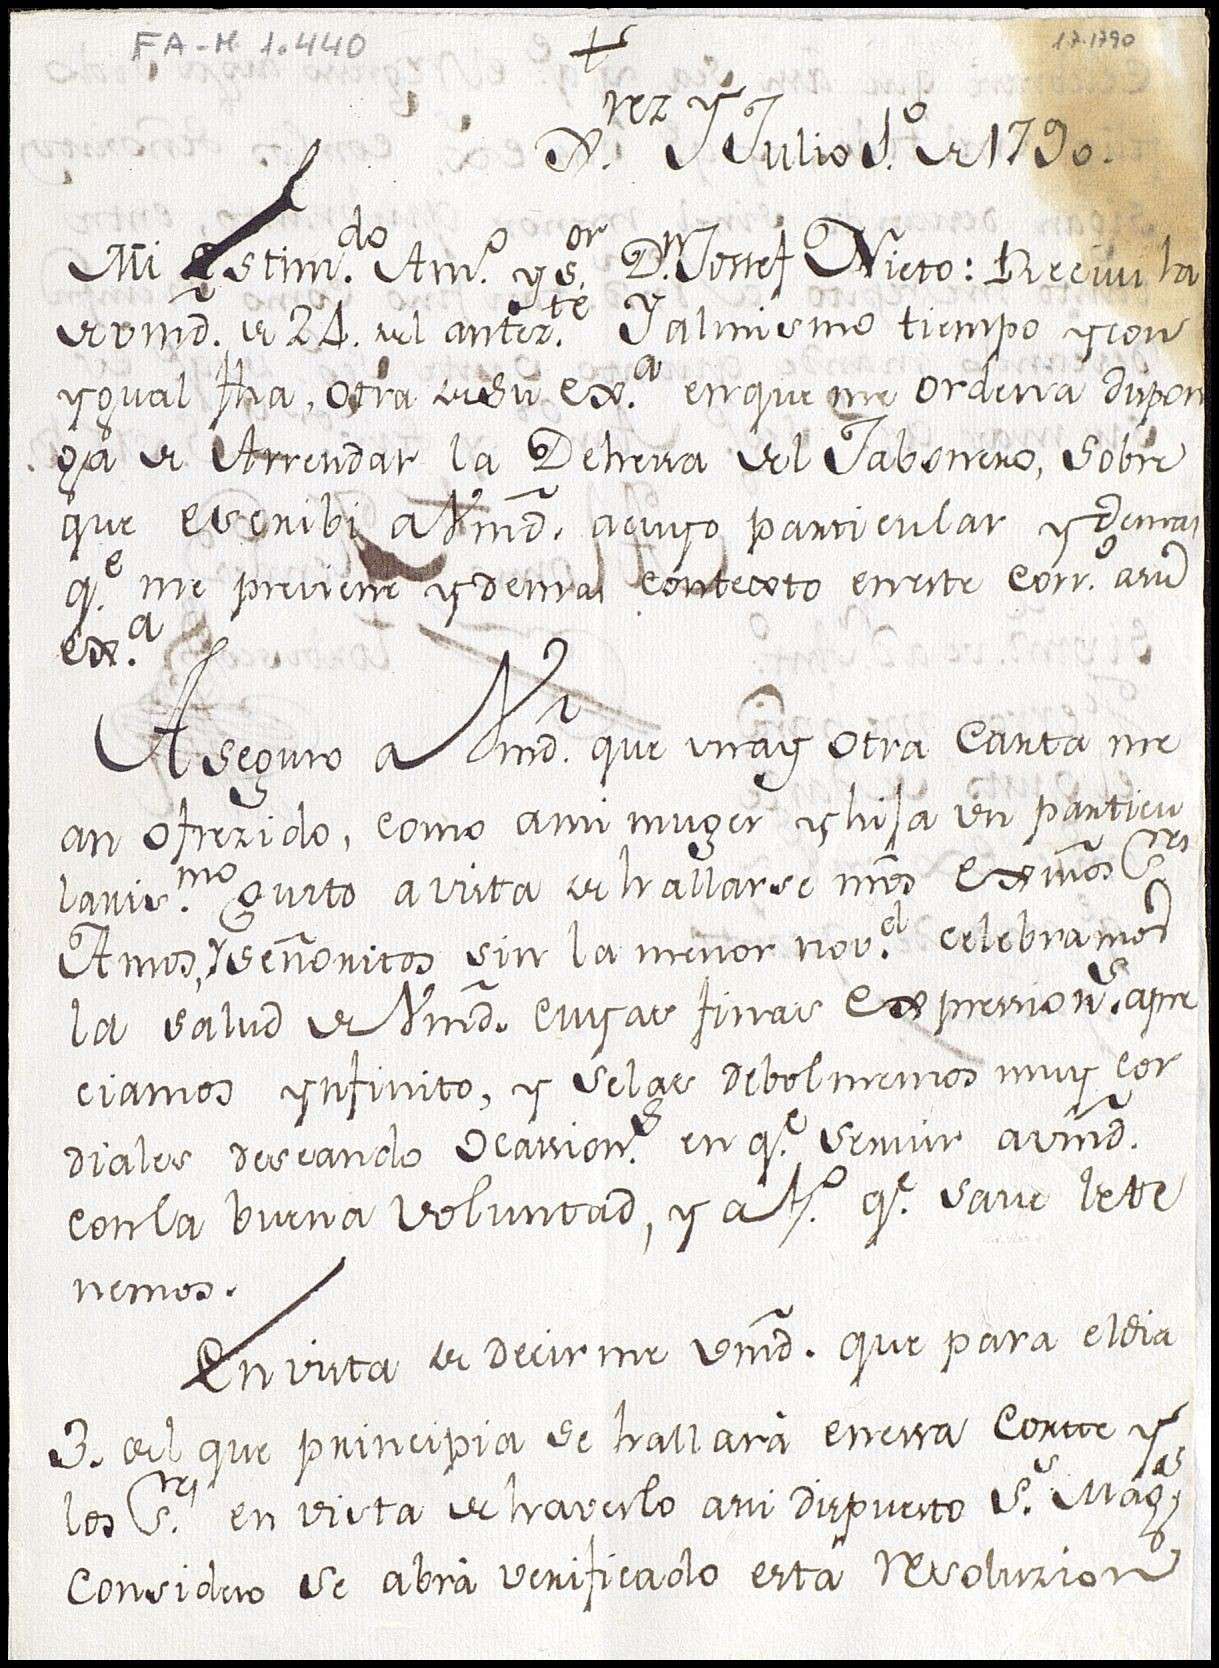 FA-M 1.440
1-7-1790
+
X.rez y Julio 1.º de 1790.
Mi estim.do Am.º y s.or D.n Josef Nieto: Recivi la
de vmd. de 24. del antez.te Y al mismo tiempo y con
ygual fha, otra de Su Ex.a en que me ordena dispon
ga de Arrendar la Dehesa del Taboneno, sobre
que escribi a Vmd. a cuyo particular y demas
q.e me previene y demas contexto en este Corr.º a su
ex.a
Aseguro a Vmd. que una y otra Carta me
an ofrezido, como a mi muger y hija un particu
laris.mo Gusto a vista de hallarse nrôs Exmôs S.res
Amos, y Señoritos sin la menor nov.d celebramos
la salud de Vmd. cuyas finas Expression.s apre
ciamos ynfinito, y se las debolvemos muy cor
diales deseando Ocassion.s en q.e servir a vmd.
con la buena voluntad, y af.º q.e save le te
nemos.
En vista de decirme vmd. que para el dia
3. del que principia se hallará en essa Corte y
los S.res en vista de haverlo asi dispuesto S.s Mag.as
Considero se abrá verificado esta resoluzion